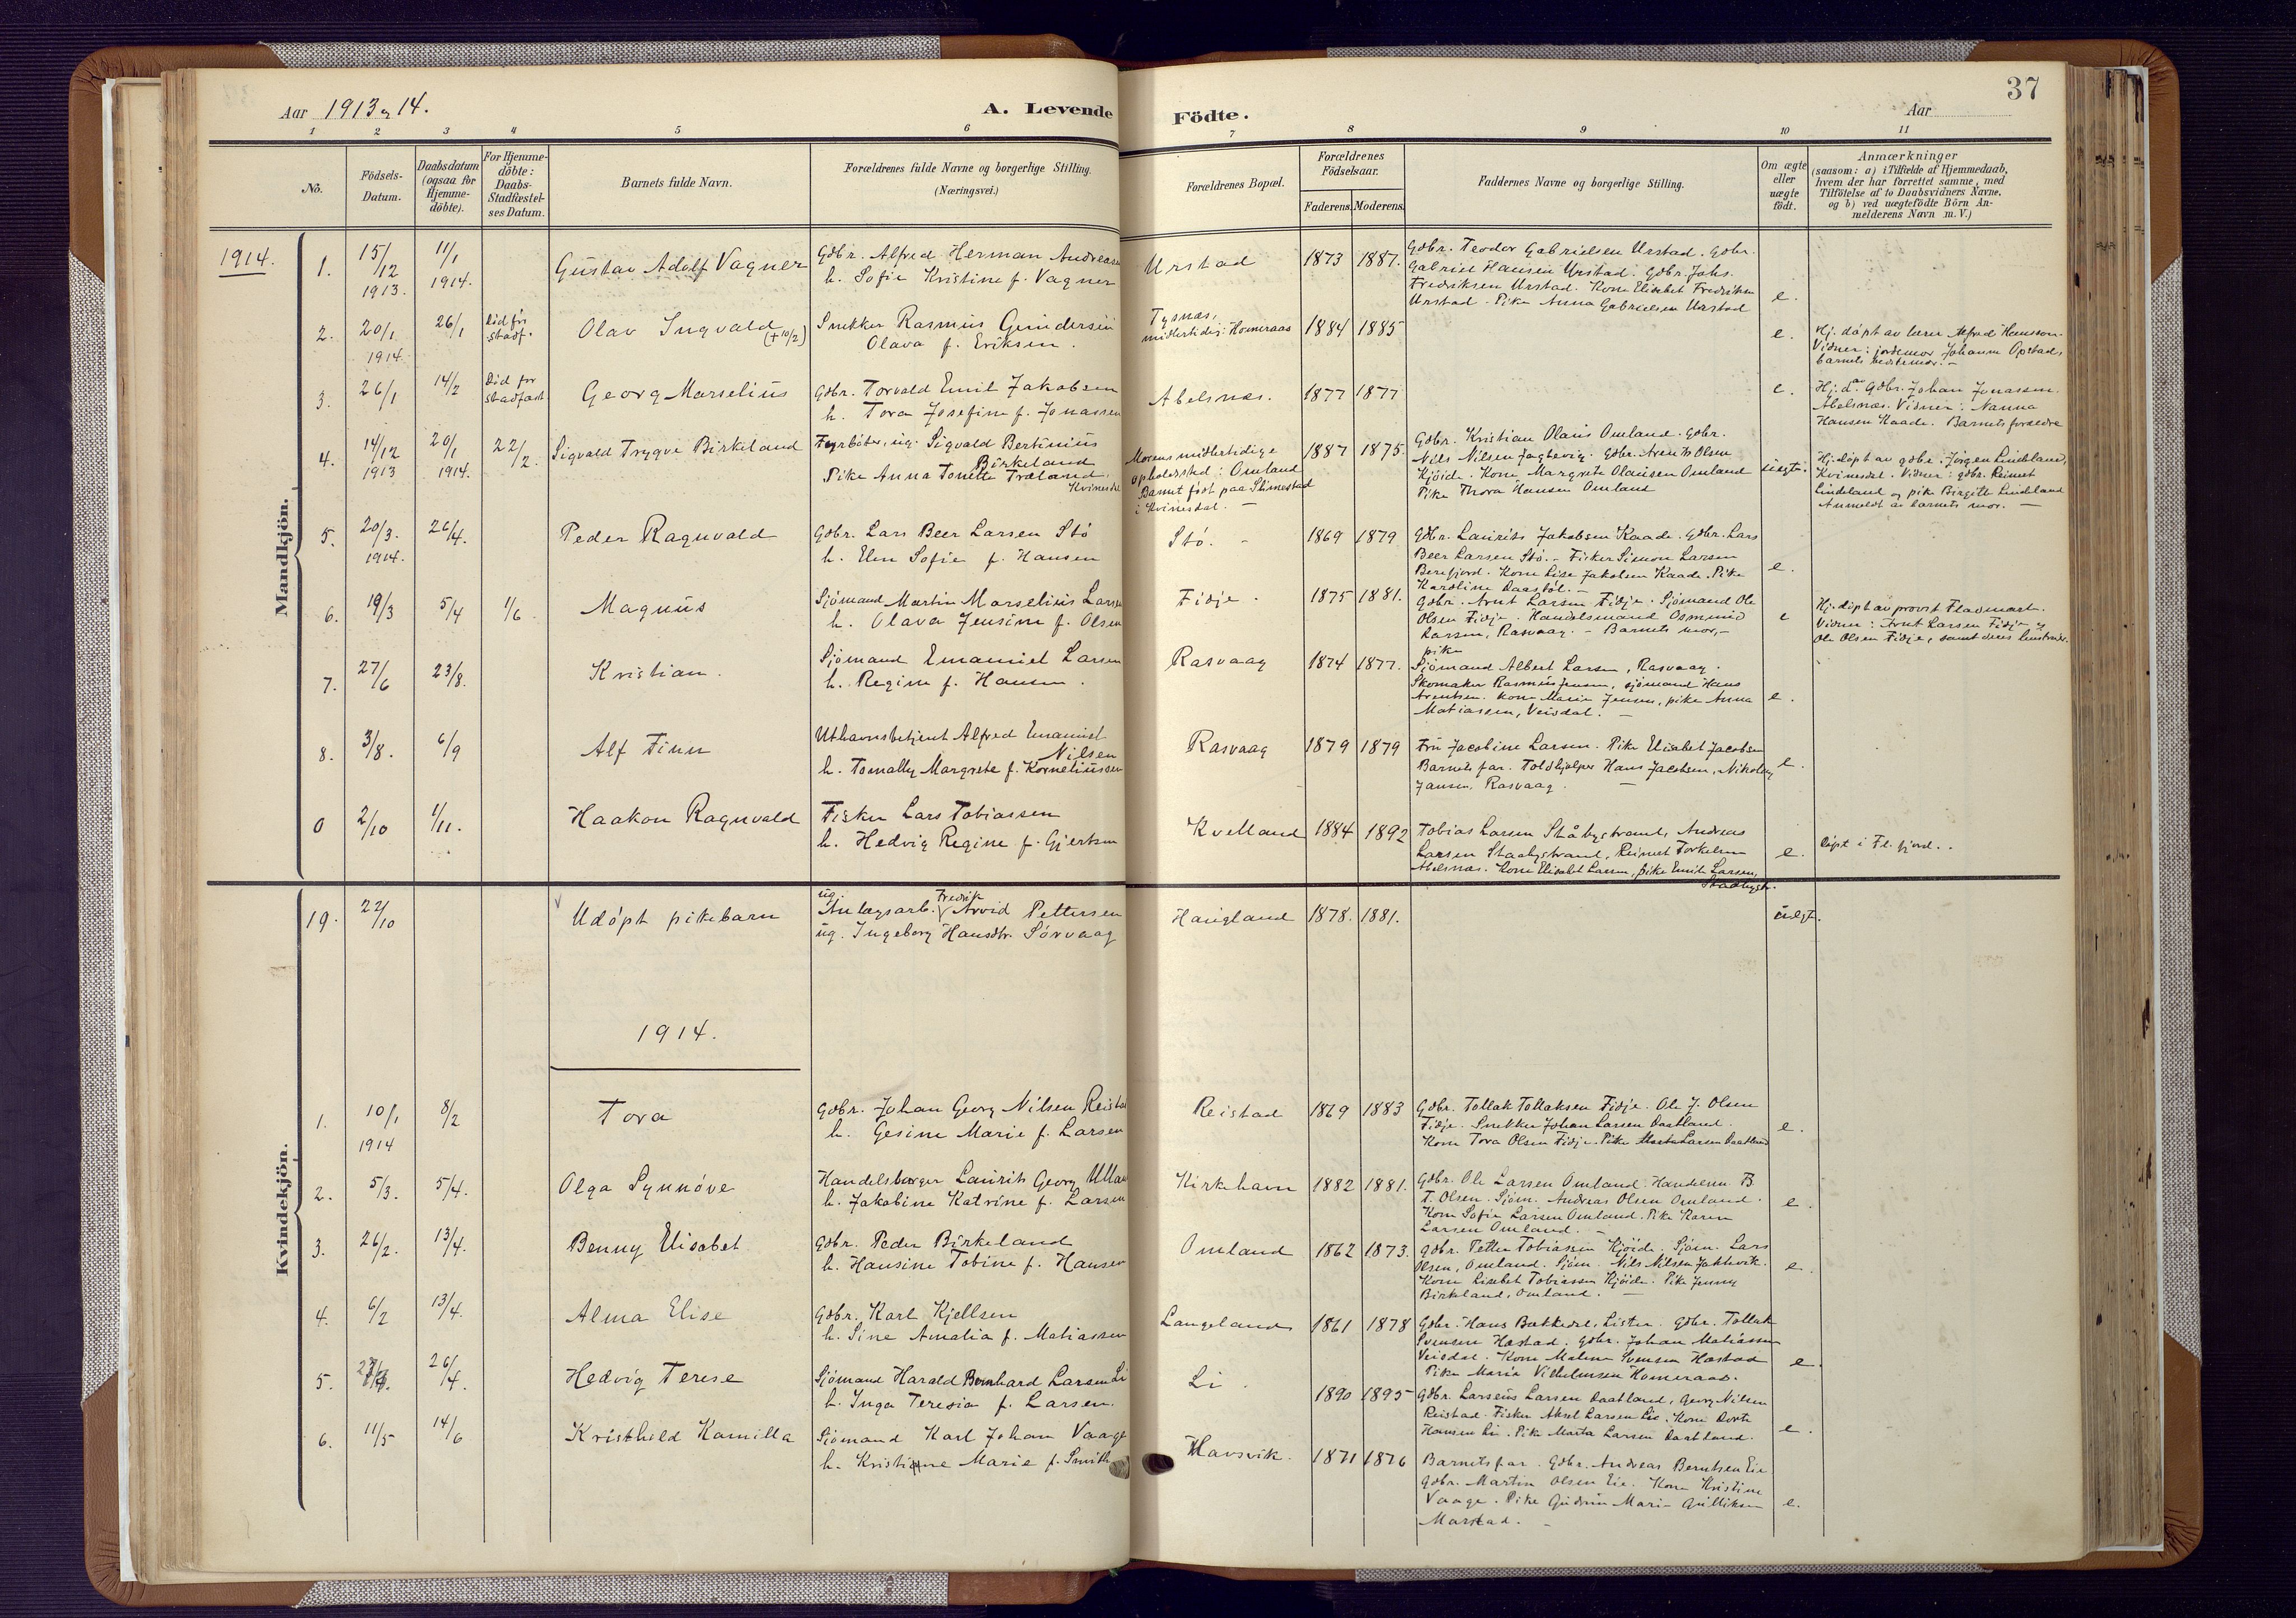 37
Aar 1913 og 14.
A. Levende Födte.
Aar
1 2 3 4 5 6 7 8 9 10 11
No.
Födsels-Datum.
Daabsdatum (ogsaa for Hjemme-döbte).
For Hjemme-döbte: Daabs-Stadfæstel-ses Datum.
Barnets fulde Navn.
Forældrenes fulde Navne og borgerlige Stilling.
(Næringsvei.)
Forældrenes Bopæl.
Forældrenes Födselsaar.
Faderens. Moderens.
Faddernes Navne og borgerlige Stilling.
Om ægte eller uægte födt.
Anmærkninger
(saasom: a) i Tilfælde af Hjemmedaab,
hvem der har forrettet samme, med
Tilföielse af to Daabsvidners Navne.
og b) ved uægtefödte Börn An-
melderens Navn m. V.)
1914.
Mandkjön.
1. 15/12 1913. 11/1 1914. Gustav Adolf Vagner
Gdbr. Alfred Herman Andreasen
h. Sofie Kristine f. Vagner
Urstad 1873 1887.
Gdbr. Teodor Gabrielsen Urstad. Gdbr.
Gabriel Hansen Urstad. Gdbr. Johs.
Fredriksen Urstad. Kone Elisabet Fredriksen
Urstad. Pike Anna Gabrielsen Urstad
e.
2. 20/1 1914. 26/1 Död før stadf. Olav Ingvald (+ 10/2)
Snekker Rasmus Gundersen
Olava f. Eriksen.
Tysnes, midlertidig: Homeraas 1884 1885 e.
Hj. døpt av lærer Alfred Hansson.
Vidner: jordemor Johanne Opstad,
barnets bedstemor. –
3. 26/1 14/2 Död før stadfæst. Georg Marselius
Gdbr. Torvald Emil Jakobsen
h. Tora Josefine f. Jonassen
Abelsnæs. 1877 1877 e.
Hj. d. av Gdbr. Johan Jonassen
Abelsnæs. Vidner: Nanna
Hansen Kaade. Barnets forældre
4. 14/12 1913 20/1 1914. 22/2. Sigvald Trygve Birkeland
Fyrbøter, ug. Sigvald Bertinius
Birkeland
Pike Anna Tonette Træland
Kvinesdal
Morens midlertidige
opholdssted: Omland
Barnet født paa Slimestad
i Kvinesdal. –
1887 1875.
Gdbr. Kristian Olaus Omland. Gdbr.
Nils Nilsen Jagtevig. Gdbr. Arents Olsen
Kjöide. Kone Margrete Olausen Omland
Pike Thora Hansen Omland
uegte.
Hj. døpt av gdbr. Jørgen Lindeland,
Kvinesdal. Vidner: gdbr. Reinert
Lindeland og pike Birgitte Lindeland
Anmeldt av barnets mor. –
5. 20/3. 1914. 26/4. Peder Ragnvald
Gdbr. Lars Beer Larsen Stö
h. Elen Sofie f. Hansen
Stö. – 1869 1879
Gdbr. Laurits Jakobsen Kaade. Gdbr. Lars
Beer Larsen Stö. – Fisker Simon Larsen
Berefjord. Kone Lise Jakobsen Kaade. Pike
Karoline Daasböl. –
e.
6. 19/3 5/4 1/6. Magnus
Sjömand Martin Marselius Larsen
h. Olava Jensine f. Olsen
Fidje. 1875 1881.
Gdbr. Arnt Larsen Fidje. Sjömand Ole
Olsen Fidje. Handelsmand Osmund
Larsen, Rasvaag. – Barnets mor, –
pike
e
Hj. døpt av provst Fladmark.
Vidner: Arnt Larsen Fidje og
Ole Olsen Fidje, samt deres hustruer.
7. 27/6 23/8. Kristian.
Sjömand Emanuel Larsen
h. Regine f. Hansen.
Rasvaag 1874 1877.
Sjömand Albert Larsen, Rasvaag.
Skomaker Rasmus Jensen, sjömand Hans
Arentsen. kone Marie Jensen, pike Anna
Matiassen, Veisdal. –
e.
8. 3/8. 6/9 Alf Finn
Uthavnsbetjent Alfred Emanuel
Nilsen
h. Tomally Margrete f. Korneliussen
Rasvaag 1879 1879
Fru Jacobine Larsen. Pike Elisabet Jacobsen
Barnets far. Toldhjælper Hans Jacobsen, Nikolay
Jansen, Rasvaag. –
e.
0 2/10 1/11. Haakon Ragnvald
Fisker Lars Tobiassen
h. Hedvig Regine f. Gjertsen
Kvelland 1884 1892
Tobias Larsen Ståbystrand, Andreas
Larsen Staabystrand, Reinert Torkelsen
Abelsnæs. Kone Elisabet Larsen, pike Emilie Larsen,
Staabystr.
e.
døpt i Fl. fjord. .
Kvindekjön.
19. 22/10 Udøpt pikebarn
ug. Anlægsarb. Fredrik Arvid Pettersen
ug. Ingeborg Hansdtr. Sørvaag
Haugland 1878. 1881. uegt.
1914.
1. 10/1 1914 8/2 Tora
Gdbr. Johan Georg Nilsen Reistad
h. Gesine Marie f. Larsen
Reistad 1869 1883
Gdbr. Tollak Tollaksen Fidje. Ole J. Olsen
Fidje. Snekker Johan Larsen Daatland.
Kone Tora Olsen Fidje. Pike Marta Larsen Daatland
e.
2. 5/3. 5/4. Olga Synnøve
Handelsborger Laurits Georg
h. Jakobine Katrine f. Larsen
Kirkehavn 1882 1881.
Gdbr. Ole Larsen Omland. Handelsm. B.
T. Olsen. Sjöm. Andreas Olsen Omland.
Kone Sofie Larsen Omland. Pike Karen
Larsen Omland. –
e.
3. 26/2. 13/4. Benny Elisabet
Gdbr. Peder Birkeland
h. Hansine Tobine f. Hansen
Omland 1862 1873.
Gdbr. Petter Tobiassen Kjöide. Sjöm. Lars
Olsen, Omland. Sjöm. Nils Nilsen Jakthvik.
Kone Lisebet Tobiassen Kjöide. Pike Jenny
Birkeland, Omland. –
e.
4. 6/2 13/4. Alma Elise
Gdbr. Karl Kjellsen
h. Sine Amalia f. Matiassen
Langeland 1861 1878
Gdbr. Hans Bakkedal, Lister. Gdbr. Tollak
Svensen Hæstad. Gdbr. Johan Matiassen
Veisdal. Kone Malene Svensen Hæstad
Pike Marie Vilhelmsen Homeraas.
e.
5. 26/4. Hedvig Terese
Sjömand Harald Bernhard Larsen Li
h. Inga Teresia f. Larsen.
Li. 1890 1895
Gdbr. Larseus Larsen Daatland, Georg Nilsen
Reistad. Fisker Aksel Larsen Lie. Kone Dorte
Hansen Li. Pike Marta Larsen Daatland.
e.
6. 11/5 14/6 Kristhild Kamilla
Sjömand Karl Johan Vaage
h. Kristine Marie f. Smith
Havsvik. 1871 1876
Barnets far. Gdbr. Andreas Berntsen Eie
Gdbr. Martin Olsen Eie. Kone Kristine
Vaage. Pike Gudrun Marie Gulliksen
Marstad. –
e.